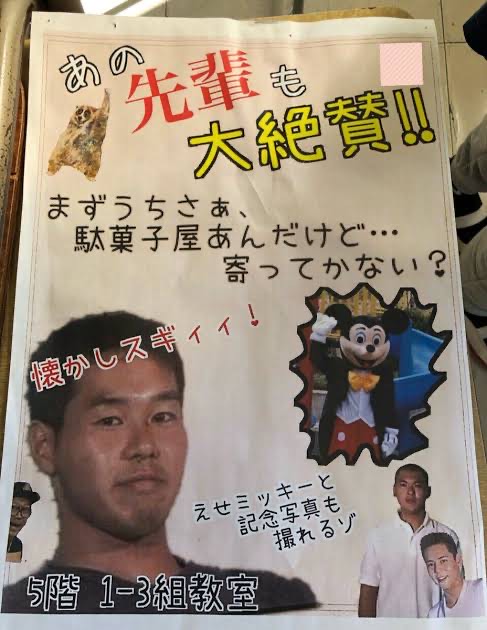 あの
先輩も
大絶賛!!
まずうちさぁ、
駄菓子屋あんだけど…
寄ってかない？
懐かしスギィィ！
えせミッキーと
記念写真も
撮れるゾ
5階 1-3組教室